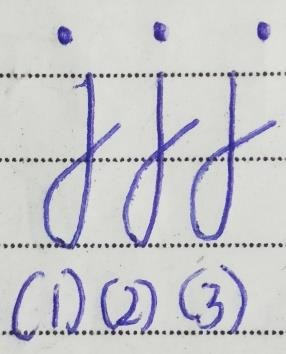 j j j
(1) (2) (3)